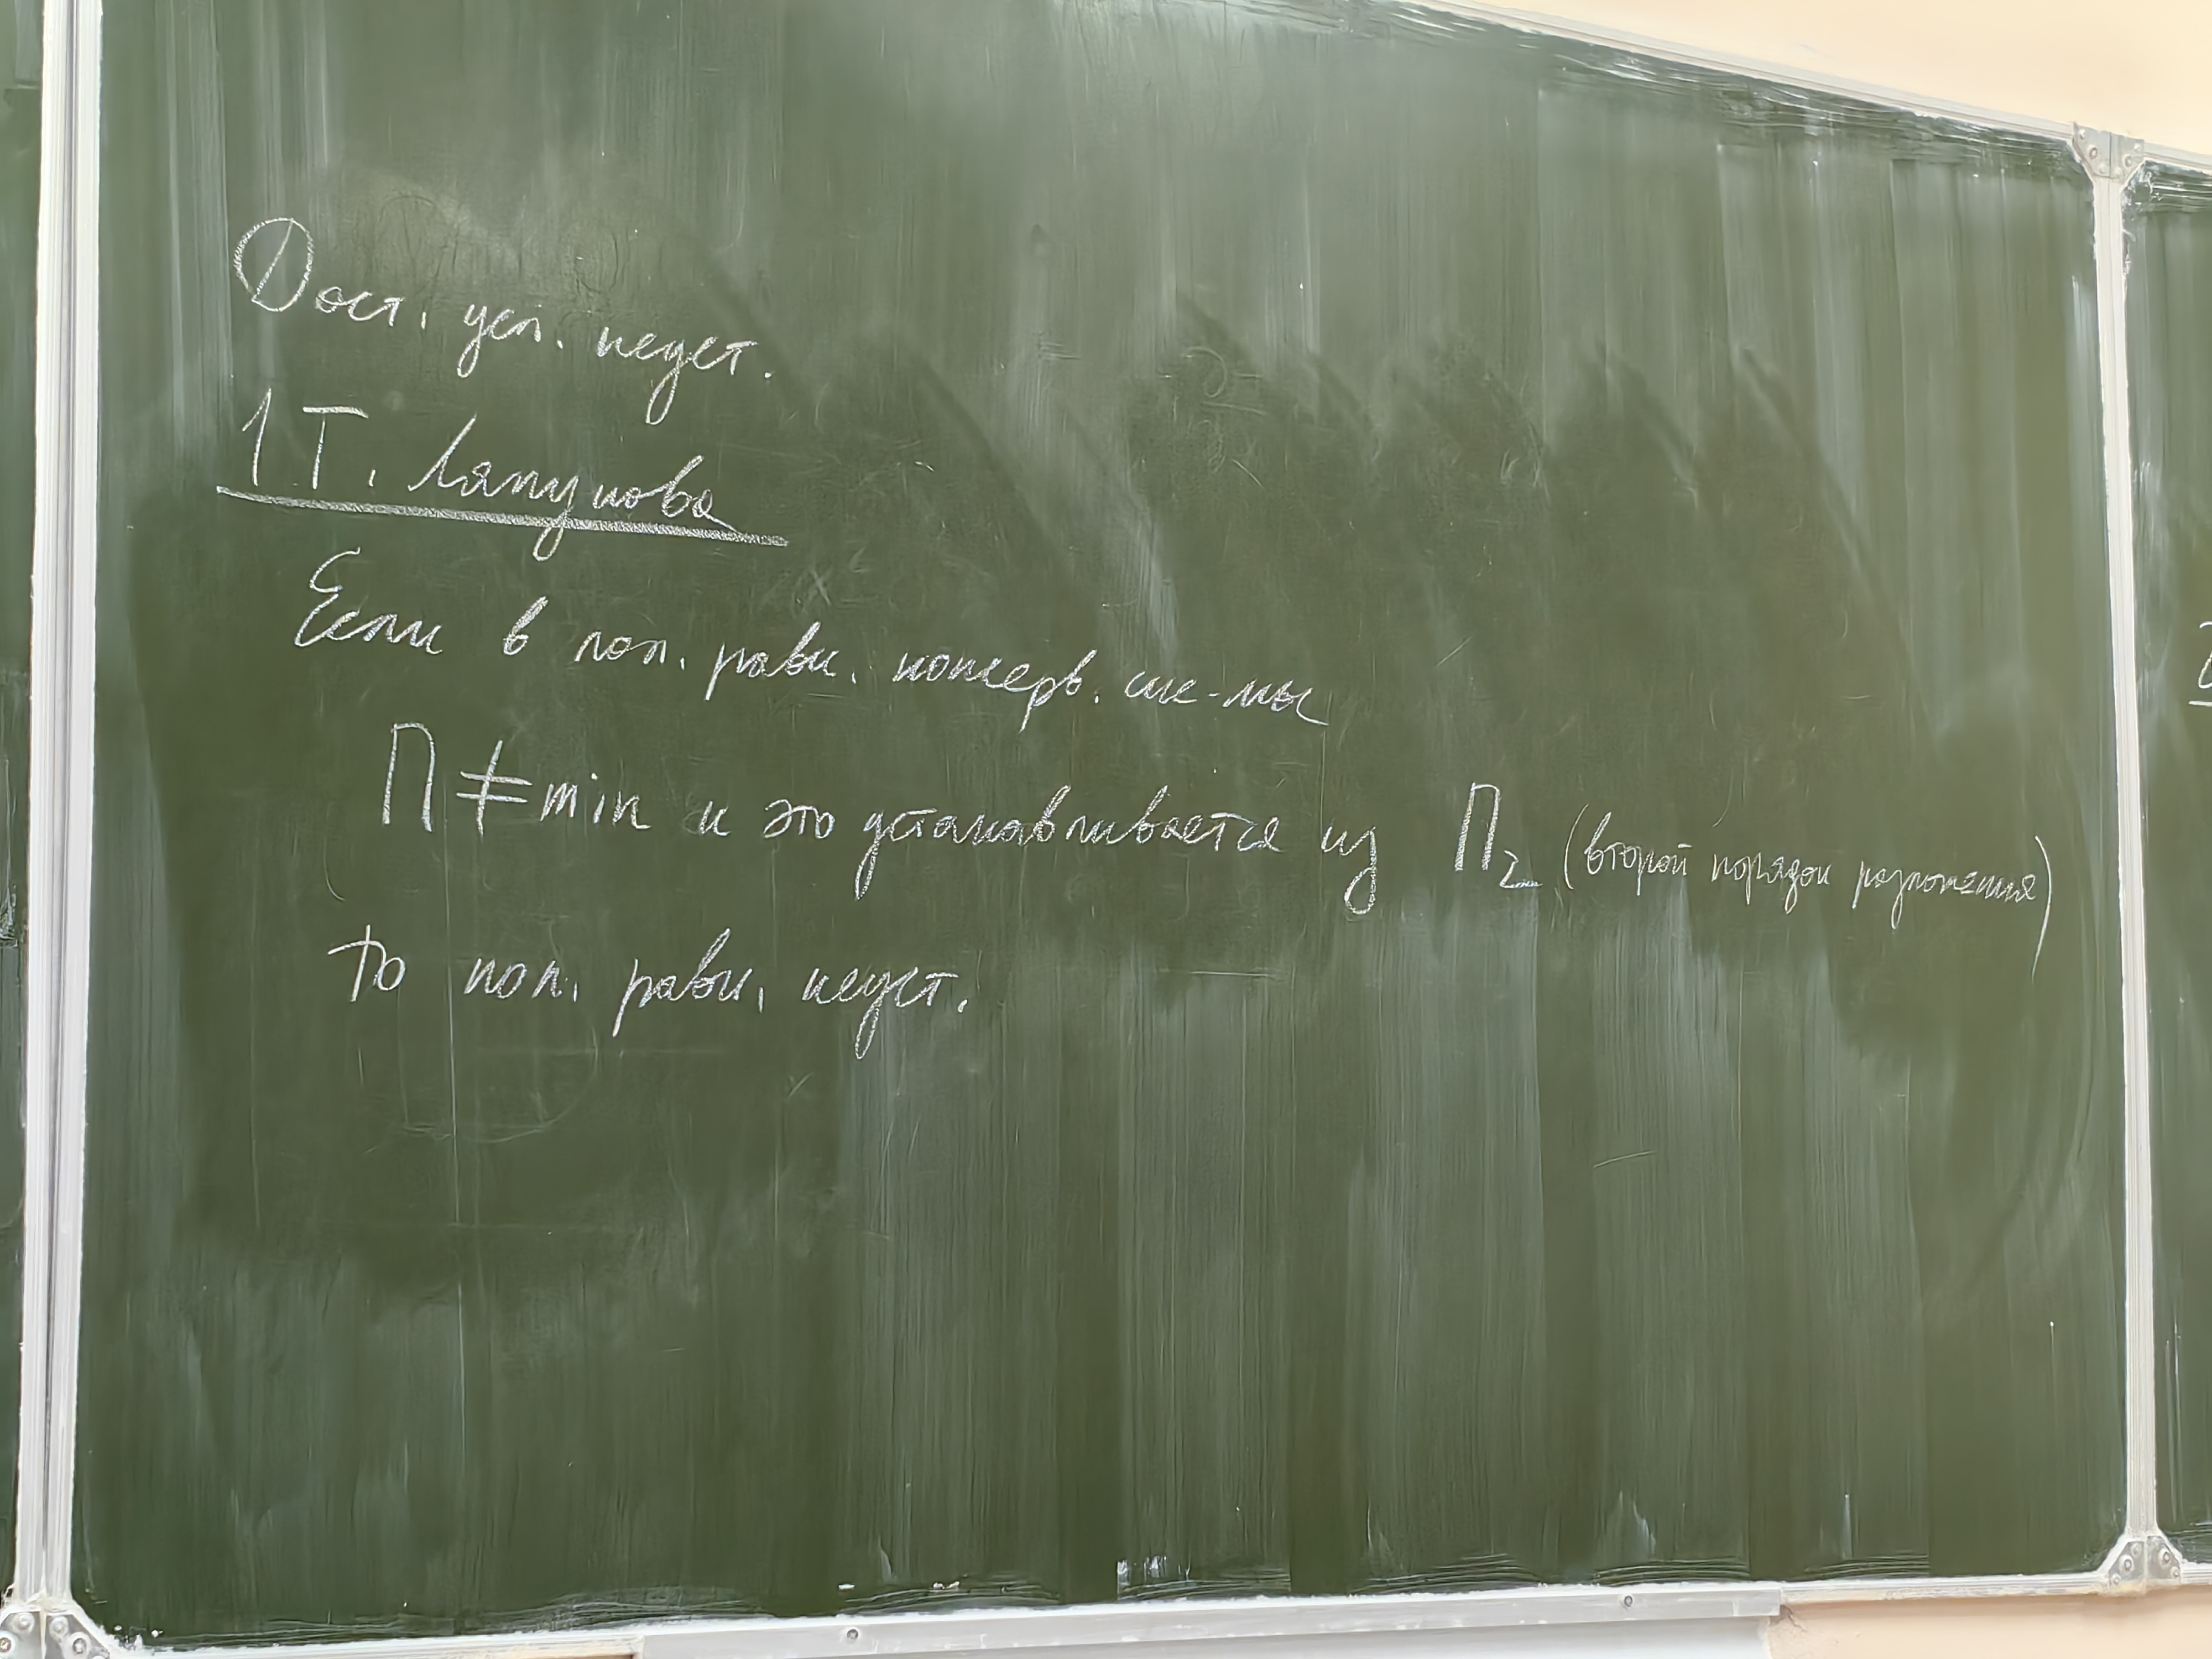 Дост. усл. неуст.
1 Т. Ляпунова
Если в пол. равн. консерв. сис-мы
П ≠ min и это устанавливается из П₂ (второй порядок разложения)
то пол. равн. неуст.